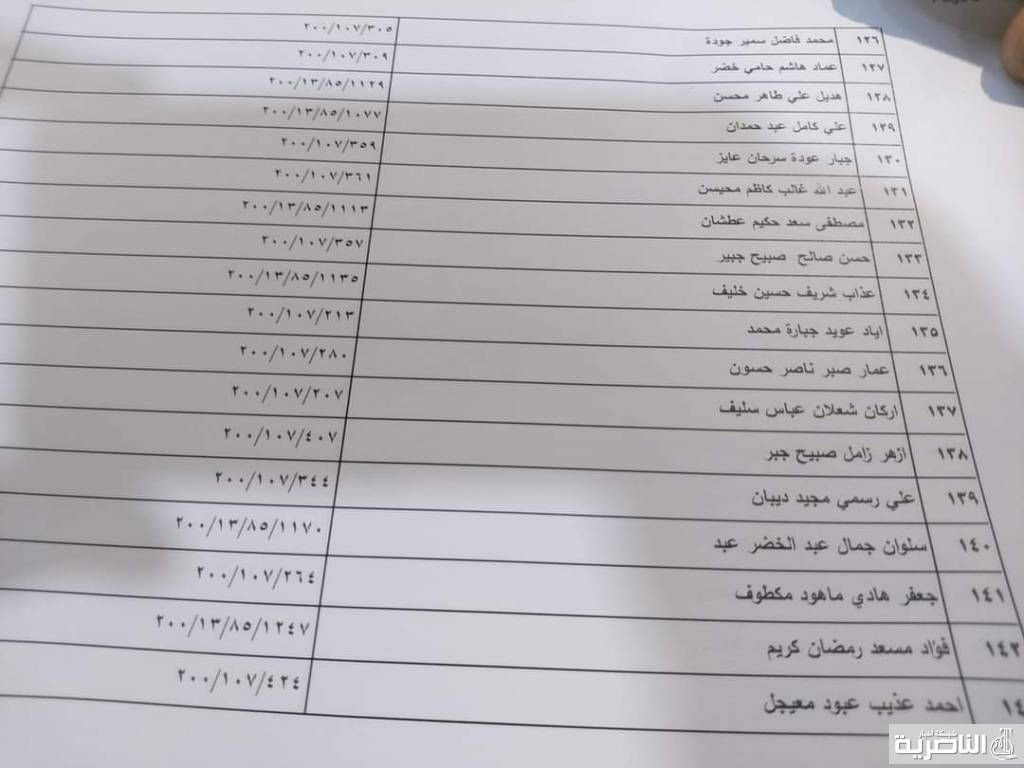 ١٢٦ محمد فاضل سمير جودة ٢٠٠/١٠٧/٣٠٥
١٢٧ عماد هاشم حامي خضر ٢٠٠/١٠٧/٣٠٩
١٢٨ هديل علي طاهر محسن ٢٠٠/١٣/٨٥/١١٢٩
١٢٩ علي كامل عبد حمدان ٢٠٠/١٣/٨٥/١٠٧٧
١٣٠ جبار عودة سرحان عايز ٢٠٠/١٠٧/٣٥٩
١٣١ عبد الله غالب كاظم محيسن ٢٠٠/١٠٧/٣٦١
١٣٢ مصطفى سعد حكيم عطشان ٢٠٠/١٣/٨٥/١١١٣
١٣٣ حسن صالح صبيح جبير ٢٠٠/١٠٧/٣٥٧
١٣٤ عذاب شريف حسين خليف ٢٠٠/١٣/٨٥/١١٣٥
١٣٥ اياد عويد جبارة محمد ٢٠٠/١٠٧/٢١٣
١٣٦ عمار صبر ناصر حسون ٢٠٠/١٠٧/٢٨٠
١٣٧ اركان شعلان عباس سليف ٢٠٠/١٠٧/٢٠٧
١٣٨ ازهر زامل صبيح جبر ٢٠٠/١٠٧/٤٠٧
١٣٩ علي رسمي مجيد ديبان ٢٠٠/١٠٧/٣٤٤
١٤٠ سلوان جمال عبد الخضر عبد ٢٠٠/١٣/٨٥/١١٧٠
١٤١ جعفر هادي ماهود مكطوف ٢٠٠/١٠٧/٢٦٤
١٤٢ فؤاد مسعد رمضان كريم ٢٠٠/١٣/٨٥/١٢٤٧
١٤ احمد عذيب عبود معيجل ٢٠٠/١٠٧/٤٢٤
شبكة اخبار
الناصرية